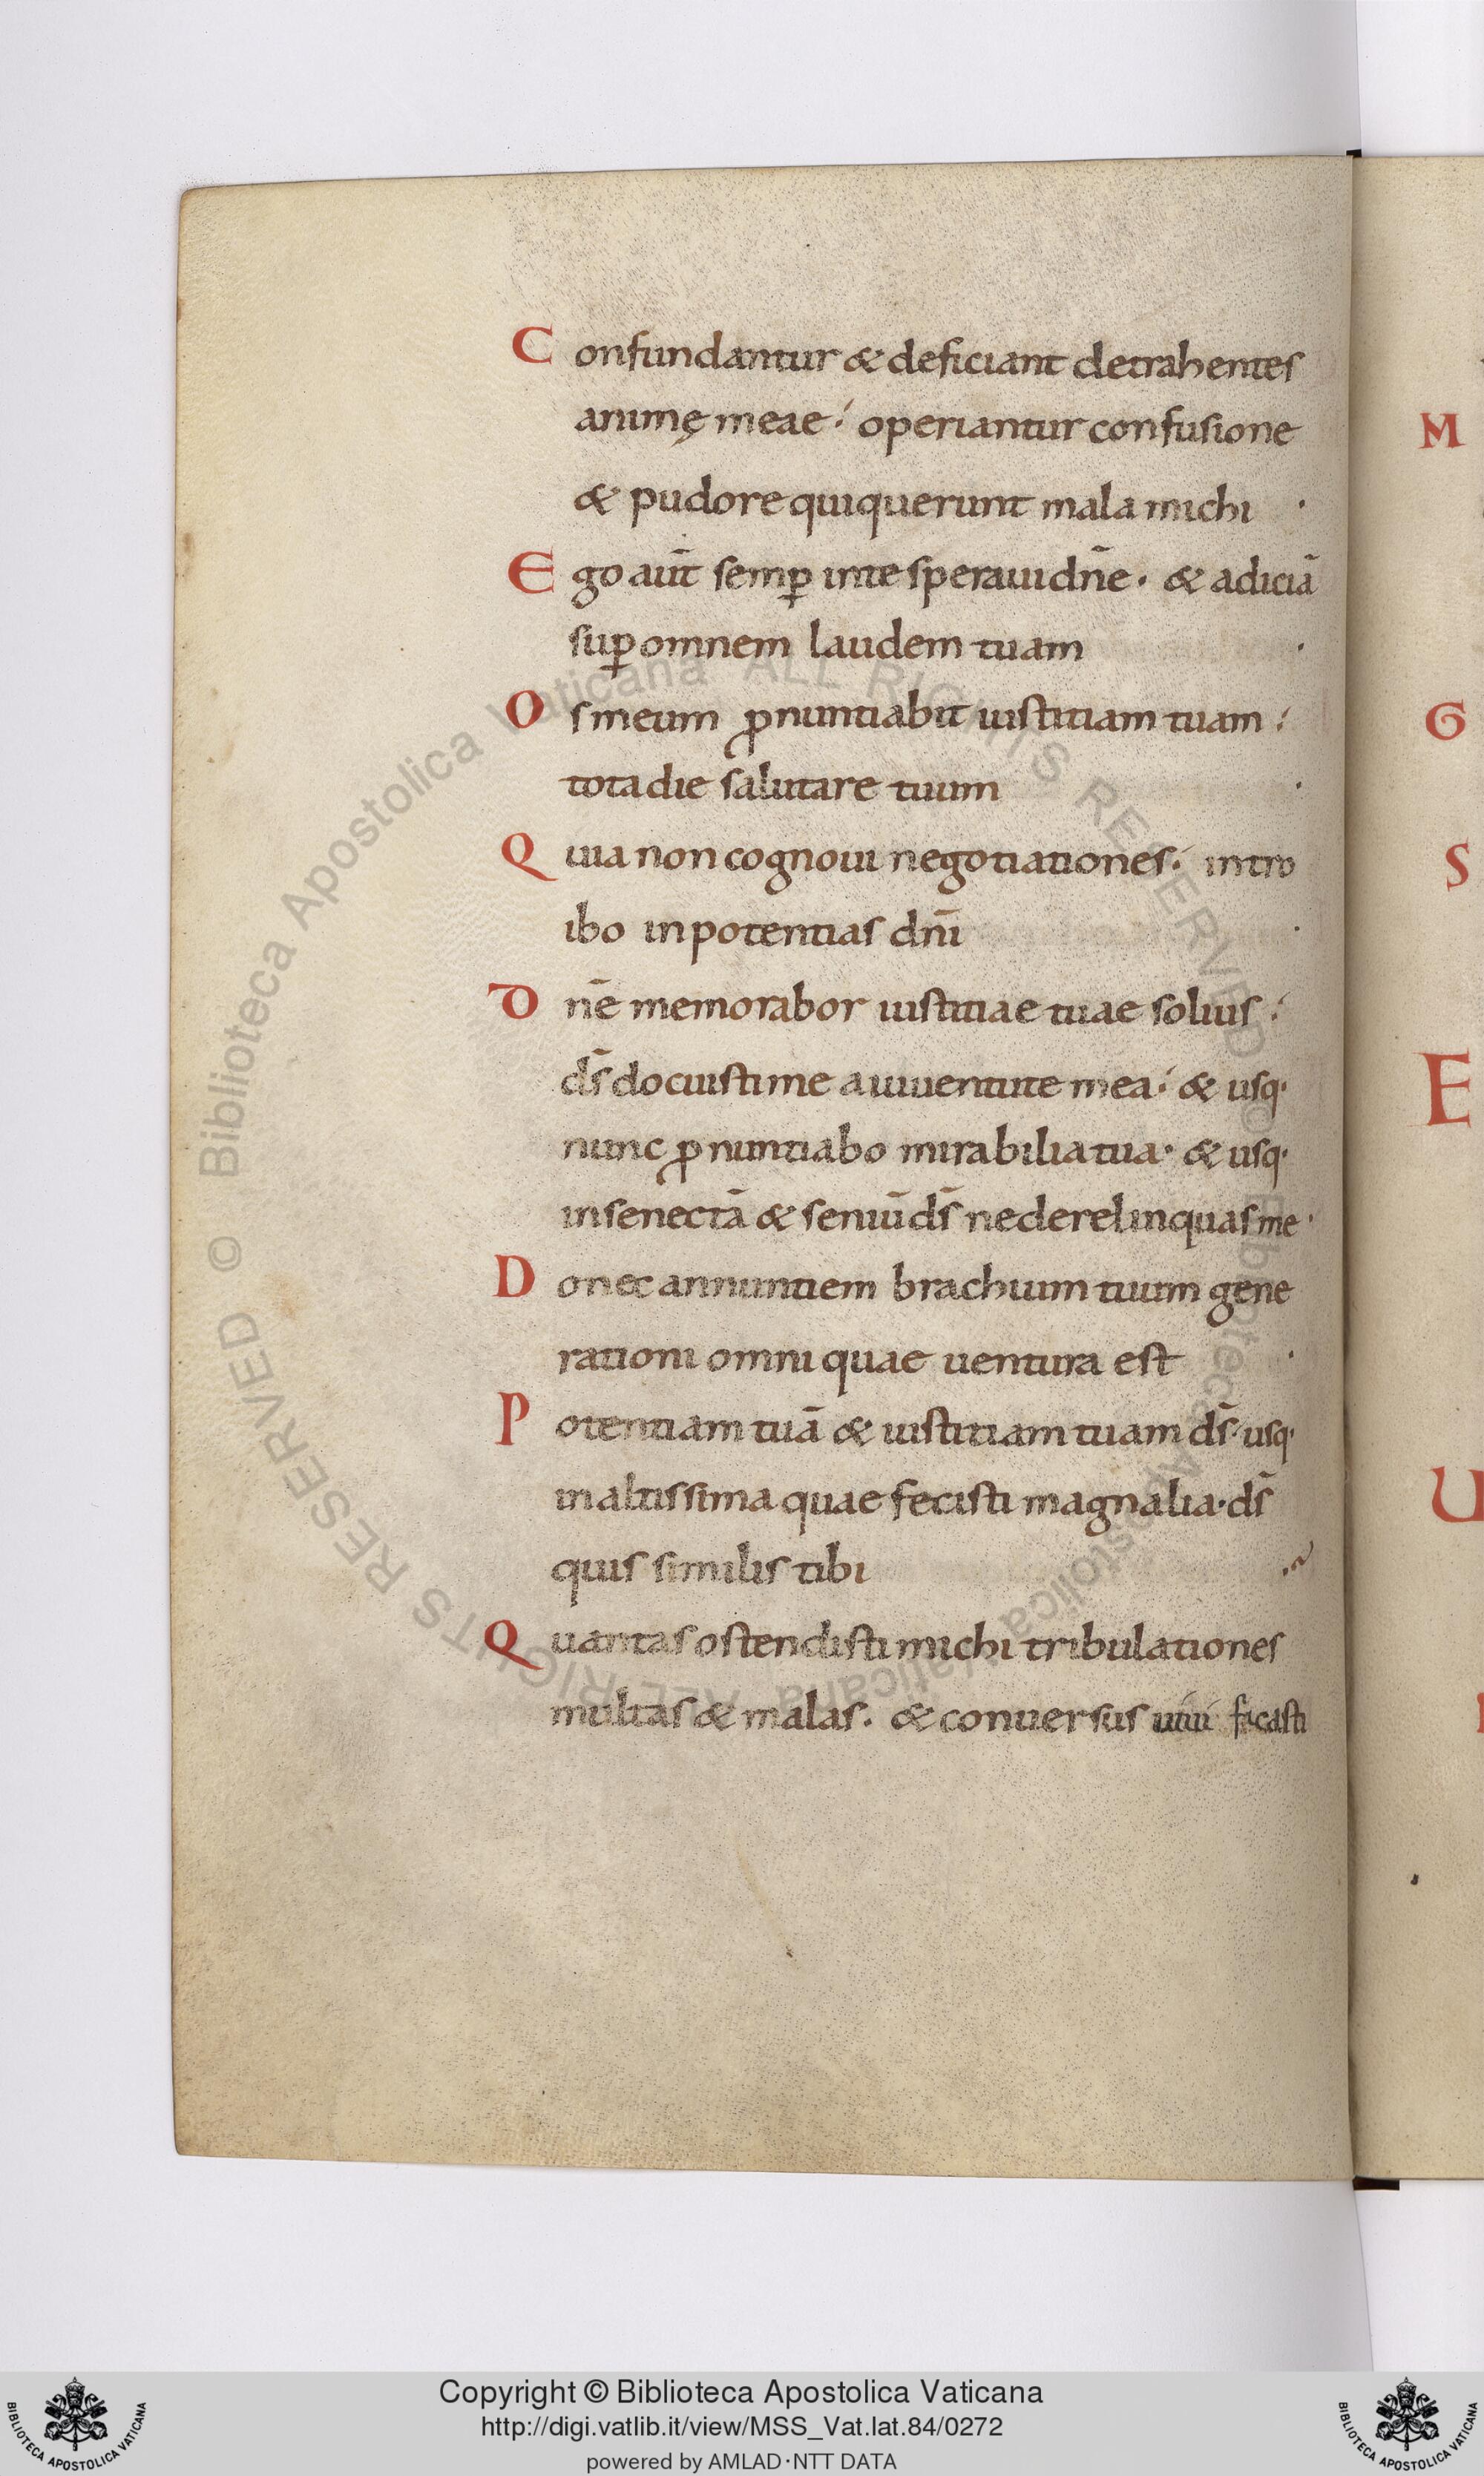 Confundantur & deficiant detrahentes
animę meae; operiantur confusione
& pudore qui querunt mala michi .
Ego aut̄ semꝑ inte speraui dn̄e. & adiciā
suꝑ omnem laudem tuam .
Os meum ꝓnuntiabit iustitiam tuam;
tota die salutare tuum .
Quia non cognoui negotiationes; intro
ibo in potentias dn̄i .
Dn̄e memorabor iustitiae tuae solius;
ds̄ docuisti me a iuuentute mea; & usq·
nunc ꝓnuntiabo mirabilia tua· & usq·
in senectā & seniū ds̄ ne derelinquas me·
Donec annuntiem brachium tuum gene
rationi omni quae uentura est .
Potentiam tuā & iustitiam tuam ds̄· usq·
in altissima quae fecisti magnalia· ds̄
quis similis tibi
Quantas ostendisti michi tribulationes
multas & malas. & conuersus uiui ficasti
M
G
S
E
U
© Biblioteca Apostolica Vaticana ALL RIGHTS RESERVED
© Biblioteca Apostolica Vaticana ALL RIGHTS RESERVED
Copyright © Biblioteca Apostolica Vaticana
http://digi.vatlib.it/view/MSS_Vat.lat.84/0272
powered by AMLAD·NTT DATA
BIBLIOTECA APOSTOLICA VATICANA
BIBLIOTECA APOSTOLICA VATICANA